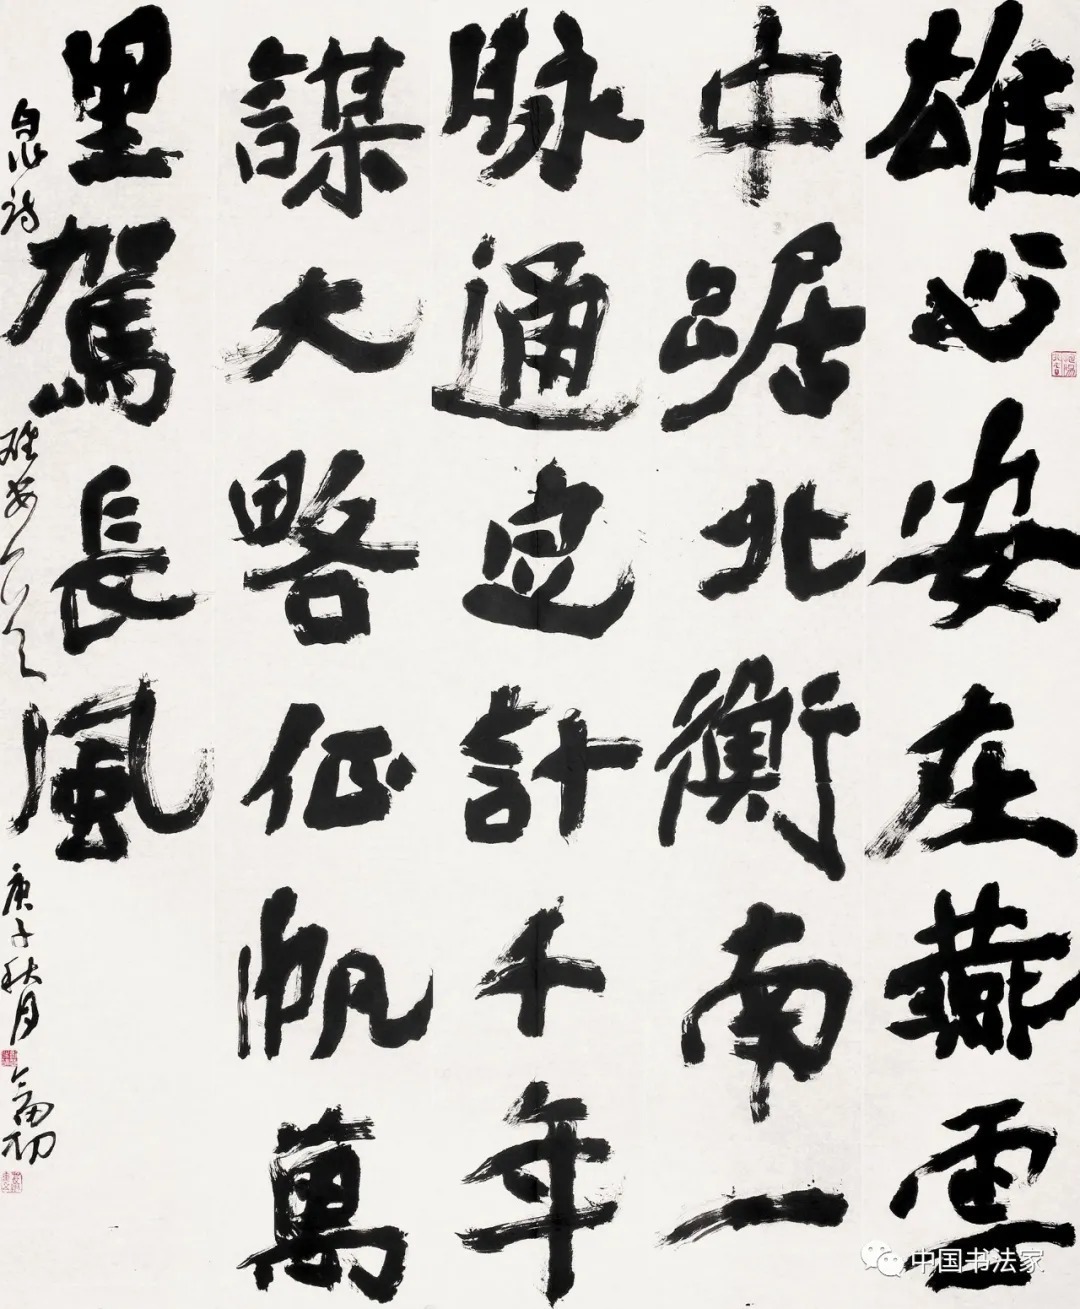 雄心安在燕雲
中踞北衡南一
脉通定計千年
謀大略征帆萬
里駕長風
泉詩 雄安 庚子秋月
中国书法家